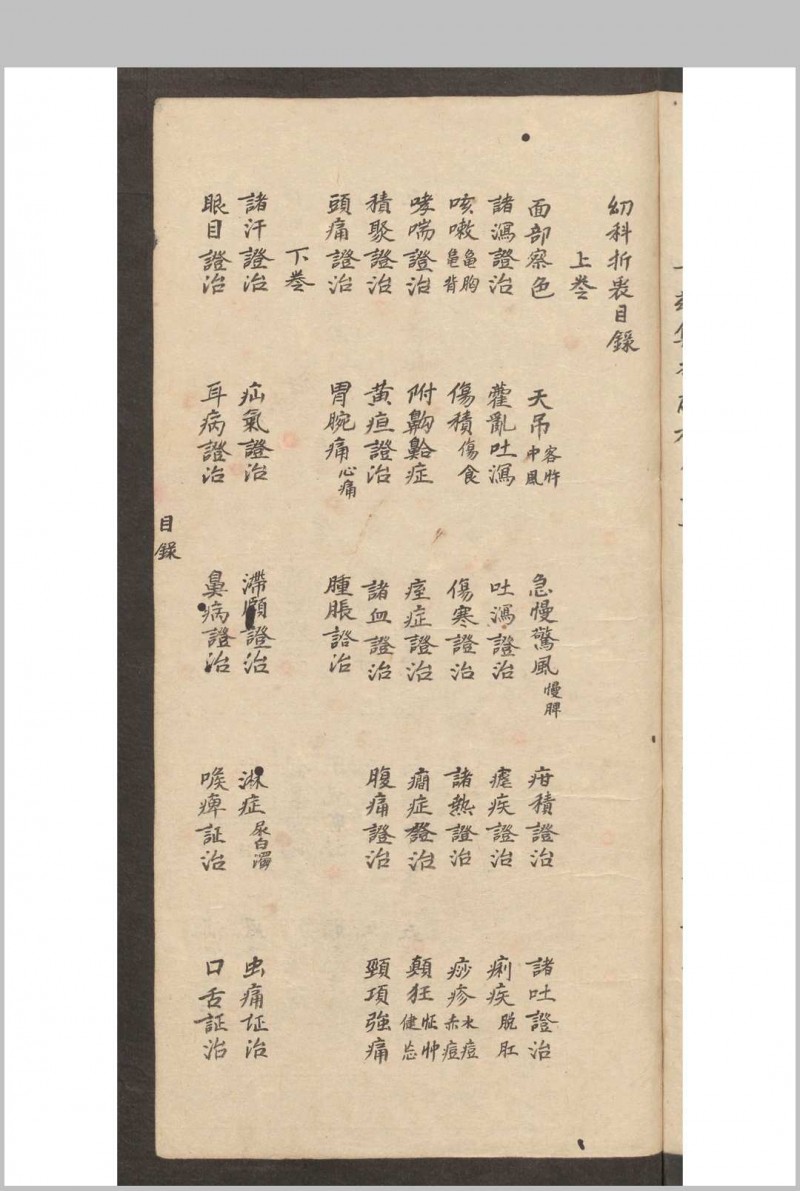 幼科折衷目錄
上巻
面部察色 天吊客忤中風 急慢驚風慢脾 疳積證治 諸吐證治
諸瀉證治 藿亂吐瀉 吐瀉證治 瘧疾證治 痢疾脱肛
咳嗽龜胸龜背 傷積傷食 傷寒證治 諸熱證治 痧疹水痘赤痘
哮喘證治 附齁䶎症 痙症證治 癇症證治 顛狂怔忡健忘
積聚證治 黄疸證治 諸血證治 腹痛證治 頸項強痛
頭痛證治 胃腕痛心痛 腫脹諮治
下巻
諸汗證治 疝氣證治 滯頤證治 淋症尿白濁 虫痛证治
眼目證治 耳病證治 鼻病證治 喉痺証治 口舌証治
目錄